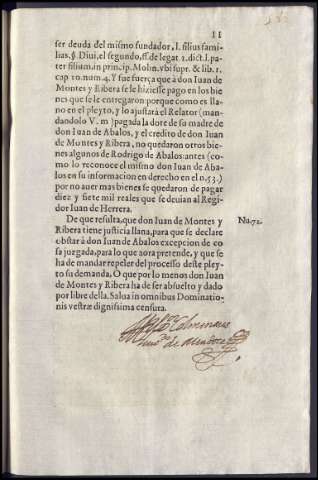 11
ser deuda del mismo fundador, l. filius fami-
lias, §. Diui, el segundo, ff. de legat 1. dict. l. pa-
ter filium, in princip. Molin. vbi supr. & lib. 1.
cap 10. num. 4. Y fue fuerça q̃ à don Iuan de
Montes y Ribera se le hiziesse pago en los bie
nes que se le entregaron porque como es lla-
no en el pleyto, y lo ajustarà el Relator (man-
dandolo V. m) pagada la dote de su madre de
don Iuan de Abalos, y el credito de don Iuan
de Montes y Ribera, no quedaron otros bie-
nes algunos de Rodrigo de Abalos: antes (co-
mo lo reconoce el mismo don Iuan de Aba-
los en su informacion en derecho en el n. 53.)
por no auer mas bienes se quedaron de pagar
diez y siete mil reales que se deuian al Regi-
dor Iuan de Herrera.
De que resulta, que don Iuan de Montes y Nu. 72.
Ribera tiene justicia llana, para que se declare
obstar à don Iuan de Abalos excepcion de co
sa juzgada, para lo que aora pretende, y que se
ha de mandar repeler del processo deste pley-
to su demanda. O que por lo menos don Iuan
de Montes y Ribera ha de ser absuelto y dado
por libre della. Salua in omnibus Dominatio-
nis vestræ dignissima censura.
Colmenares
de Mendoça